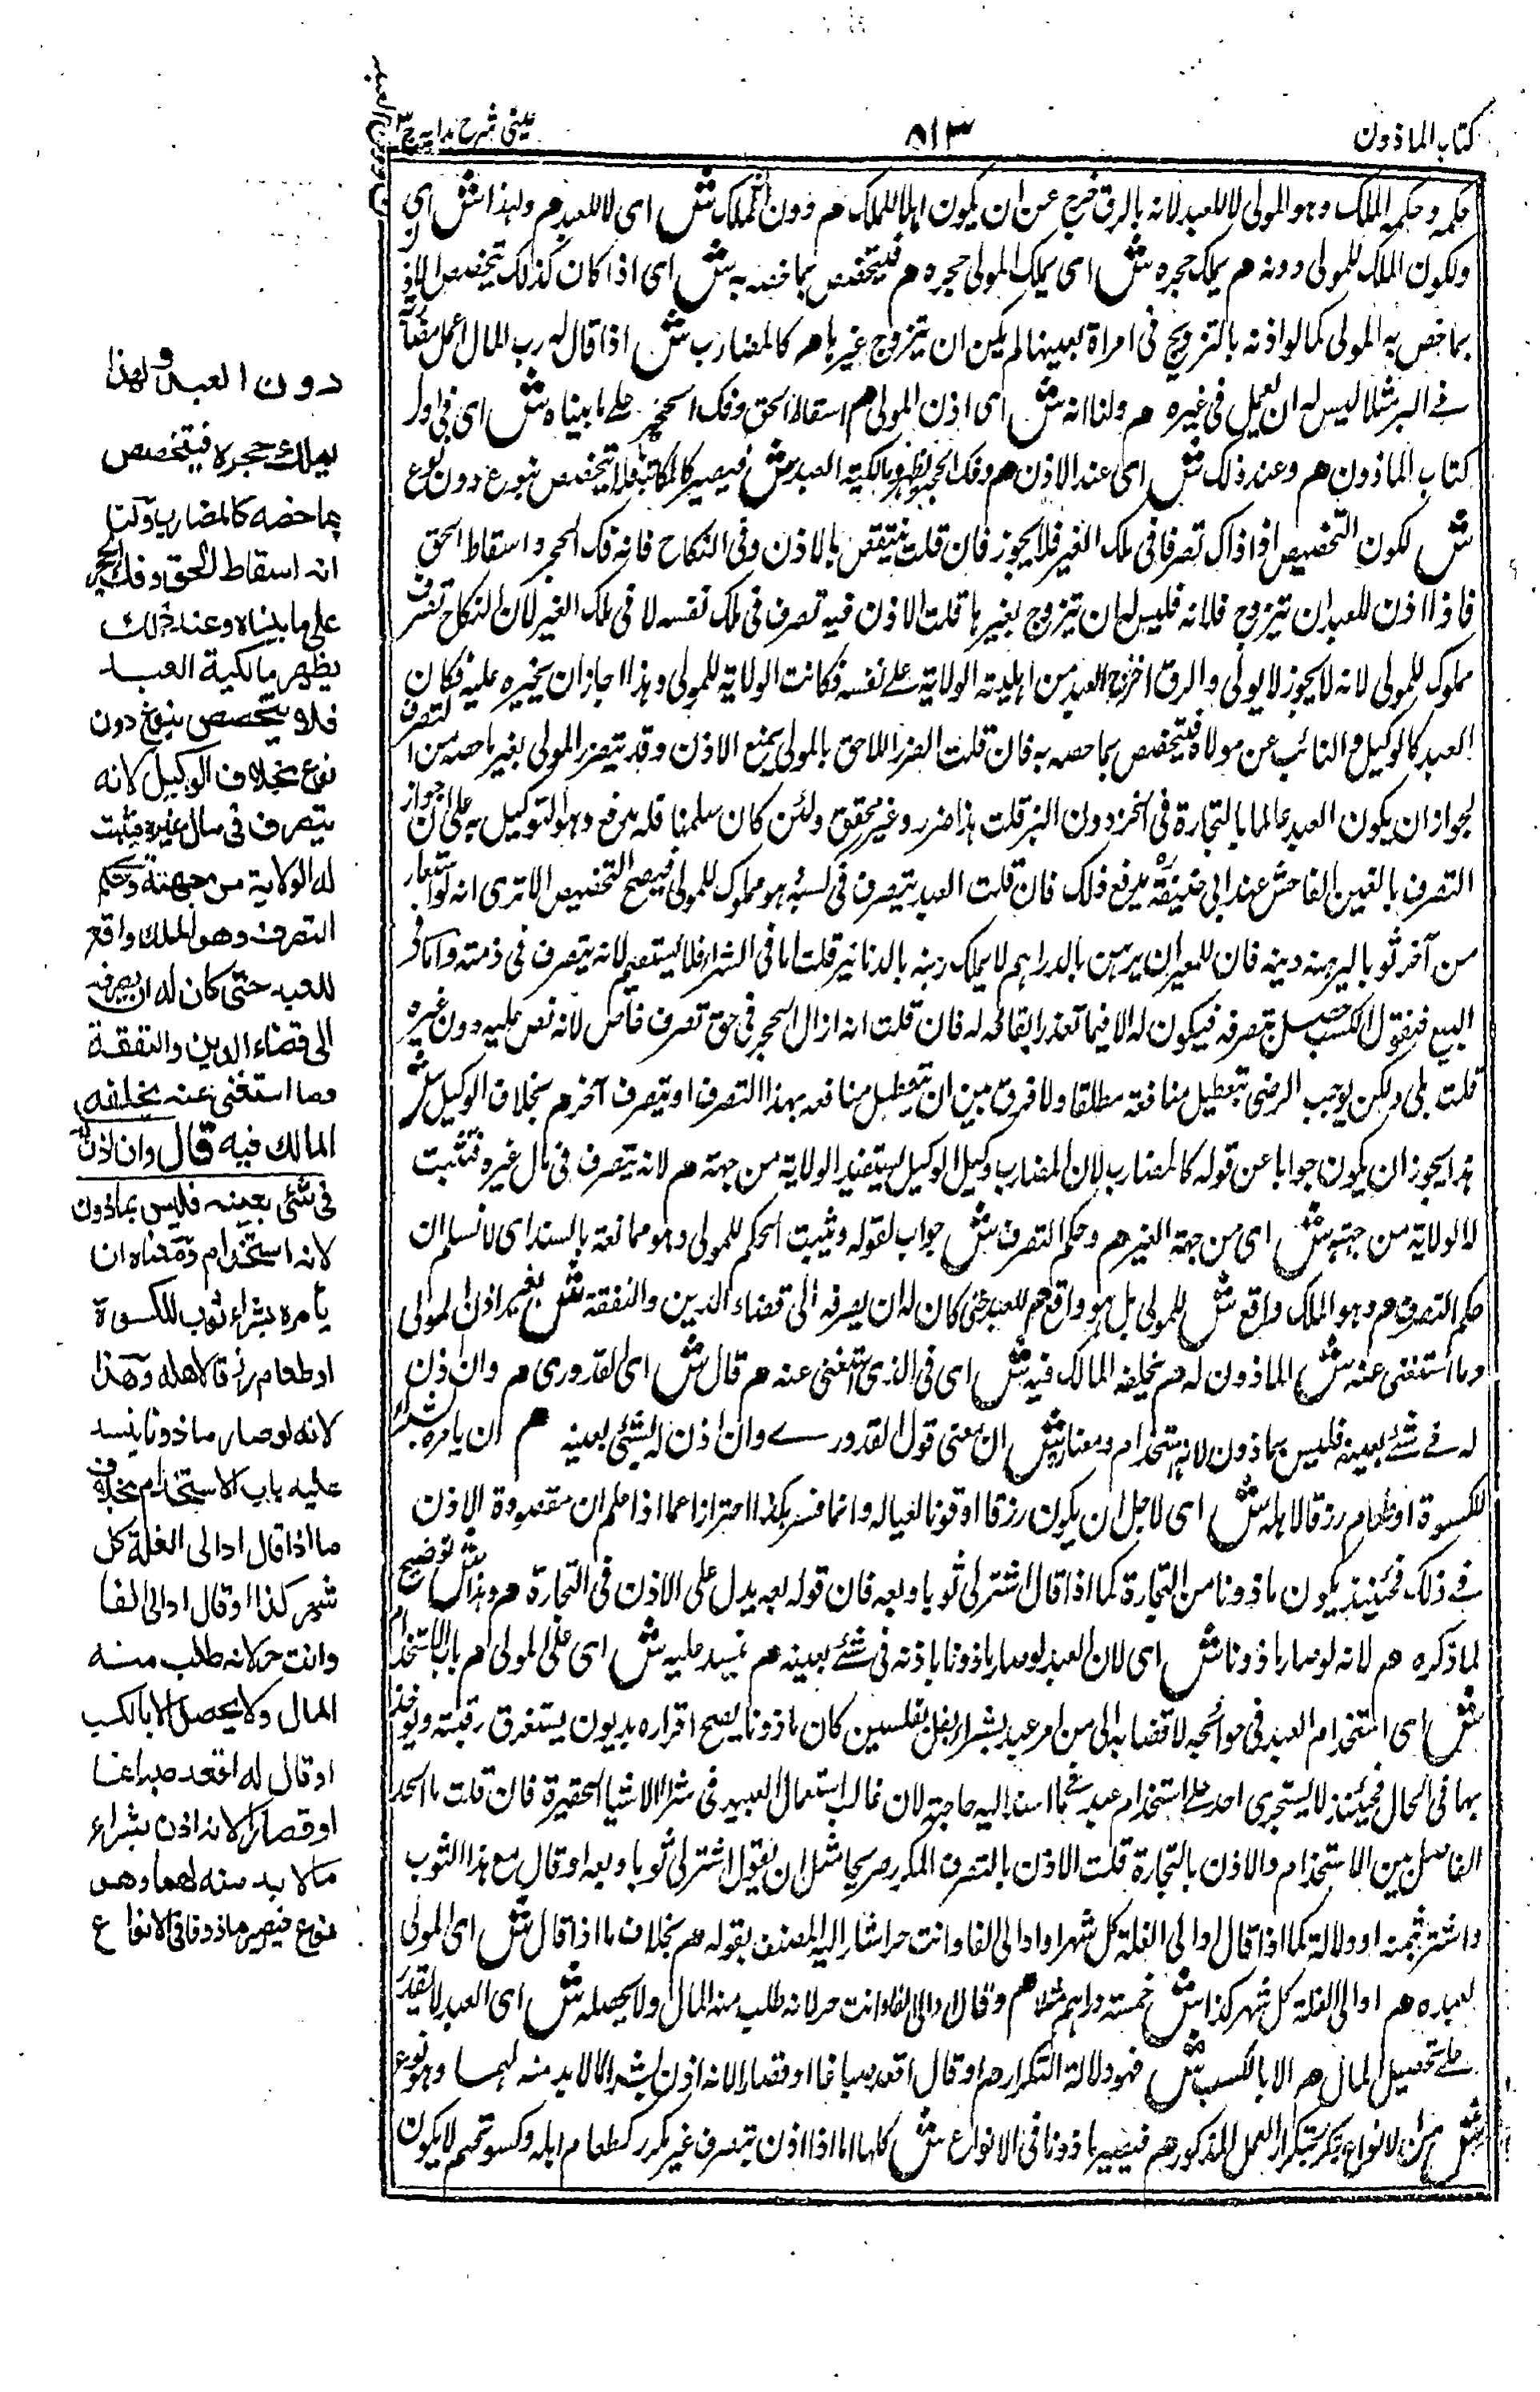 كتاب الماذون
٥١٣
عينى شرح هدايه ج ٣
حكمه وحكمه الملك وهو المولى لا للعبد لانه بالرق خرج عن ان يكون اهلا للملك هم دون التملك ش اى لا للعبد هم ولهذا ش اى
ولكون الملك للمولى دونه هم يملك حجره ش اى يملك المولى حجره هم فيتخصص بما خصه به ش اى اذا كان كذلك تخصص الاذن
بما خص به المولى كما لو اذنه بالتزويج فى امراة بعينها لم يكن ان يتزوج غيرها هم كالمضارب ش اذا قال له رب المال اعمل مضاربة
فے البر مثلا ليس له ان يعمل فى غيره هم ولنا انه ش اى اذن المولى هم اسقاط الحق وفك الحجر علے ما بيناه ش اى فى اول
كتاب الماذون هم وعند ذلك ش اى عند الاذن هم وفك الحجر يظهر مالكية العبد ش فيصير كالمكاتب فلا يتخصص بنوع دون نوع
ش لكون التخصيص اذ ذاك تصرفا فى ملك الغير فلا يجوز فان قلت ينتقض بالاذن وفى النكاح فانه فك الحجر واسقاط الحق
فاذا اذن للعبد ان يتزوج فلانه فليس له ان يتزوج بغيرها قلت الاذن فيه تصرف فى ملك نفسه لا فى ملك الغير لان النكاح تصرف
مملوك للمولى لانه لا يجوز الا بولى والرق اخرج العبد من اهلية الولاية علے نفسه فكانت الولاية للمولى ولهذا جاز ان يجبره عليه فكان
العبد كالوكيل والنائب عن مولاه فيتخصص بما خصه به فان قلت الضرر اللاحق بالمولى يمنع الاذن وقد يتضرر المولى بغير ما خصه من التصرف
لجواز ان يكون العبد عالما بالتجارة فى الخز دون البز قلت هذا ضرر وغير محقق ولئن كان سلمنا فله مدفع وهو التوكيل به على ان جواز
التصرف بالغبن الفاحش عند ابى حنيفة رح يدفع ذلك فان قلت العبد يتصرف فى كسبه وهو مملوك للمولى فيصح التخصيص الا ترى انه لو استعار
من آخر ثوبا ليرهنه دينه فان للمعير ان يرهن بالدراهم لا يملك رهنه بالدنانير قلت اما فى الشراء فلا يستقيم لانه يتصرف فى ذمته واما فى
البيع فنقول الكسب حصل بتصرفه فيكون له الا فيما تعذر ابقائه له فان قلت انه ازال الحجر فى حق تصرف خاص لانه نص عليه دون غيره
قلت بلى ولكن يوجب الرضى بتعطيل منافعه مطلقا ولا فرق بين ان يتعطل منافعه بهذا التصرف او بتصرف آخر هم بخلاف الوكيل ش
هذا يجوز ان يكون جوابا عن قوله كالمضارب لان المضارب وكيل الوكيل يستفيد الولاية من جهته هم لانه يتصرف فى مال غيره فتثبت
له الولاية من جهته ش اى من جهة الغير هم وحكم التصرف ش جواب لقوله ويثبت الحكم للمولى وهو ممانعة بالسند اى لا نسلم ان
حكم التصرف هم وهو الملك واقع ش للمولى بل هو واقع هم للعبد حتى كان له ان يصرفه الى قضاء الدين والنفقة ش بغير اذن المولى
وما استغنى عنه ش الماذون له هم يخلفه المالك فيه ش اى فى الذى استغنى عنه هم قال ش اى القدورى هم وان اذن
له فے شئے بعينه فليس بماذون لانه استخدام ومعناه ش ان معنى قول القدورے وان اذن له بشئى بعينه هم ان يامره بشراء ثوب
للكسوة او طعام رزقا لاهله ش اى لاجل ان يكون رزقا او قوتا لعياله وانما فسر بهكذا احترازا عما اذا علم ان مقصوده الاذن
فے ذلك فحينئذ يكون ماذونا من التجارة كما اذا قال اشتر لى ثوبا وبعه فان قوله بعه يدل على الاذن فى التجارة هم وهذا ش توضيح
لما ذكره هم لانه لو صار ماذونا ش اى لان العبد لو صار ماذونا باذنه فى شئے بعينه هم ينسد عليه ش اى على المولى هم باب الاستخدام
ش اى استخدام العبد فى حوائجه لافضائه الى من امر عبده بشراء بقل بفلسين كان ماذونا يصح اقراره بديون يستغرق رقبته ويوخذ
بها فى الحال فحينئذ لا يستجرى احد علے استخدام عبده فے ما اسند اليه حاجته لان غالب استعمال العبيد فى شراء الاشياء الحقيرة فان قلت ما الحد
الفاصل بين الاستخدام والاذن بالتجارة قلت الاذن بالتصرف المكرر صريحا مثل ان يقول اشتر لى ثوبا وبعه او قال بع هذا الثوب
واشتر بثمنه او دلالة كما اذا قال اد الى الغلة كل شهر او اد الى الفا وانت حر اشار اليه المصنف بقوله هم بخلاف ما اذا قال ش اى المولى
لعبده هم اد الى الغلة كل شهر كذا ش خمسة دراهم مثلا هم وقال اد الى الفا وانت حر لانه طلب منه المال ولا يحصله ش اى العبد لا يقدر
علے تحصيل المال هم الا بالكسب ش فهو دلالة التكرار هم او قال اقعد صباغا او قصارا لانه اذن بشراء ما لا بد منه لهما وهو نوع
ش من الانواع يتكرر بتكرار العمل المذكور هم فيصير ماذونا فى الانواع ش كلها اما اذا اذن بتصرف غير مكرر كطعام اهله وكسوتهم لا يكون
دون العبد ولهذا
يملك حجره فيتخصص
بما خصه كالمضارب ولنا
انه اسقاط الحق وفك الحجر
على ما بيناه وعند ذلك
يظهر مالكية العبد
فلا يتخصص بنوع دون
نوع بخلاف الوكيل لانه
يتصرف فى مال غيره فيثبت
له الولاية من جهته وحكم
التصرف وهو الملك واقع
للعبد حتى كان له ان يصرفه
الى قضاء الدين والنفقة
وما استغنى عنه يخلفه
المالك فيه قال وان اذن له
فى شئى بعينه فليس بماذون
لانه استخدام ومعناه ان
يأمره بشراء ثوب للكسوة
او طعام رزقا لاهله وهذا
لانه لو صار ماذونا ينسد
عليه باب الاستخدام بخلاف
ما اذا قال اد الى الغلة كل
شهر كذا او قال اد الى الفا
وانت حر لانه طلب منه
المال ولا يحصل الا بالكسب
او قال له اقعد صباغا
او قصارا لانه اذن بشراء
ما لا بد منه لهما وهو
نوع فيصير ماذونا فى الانواع